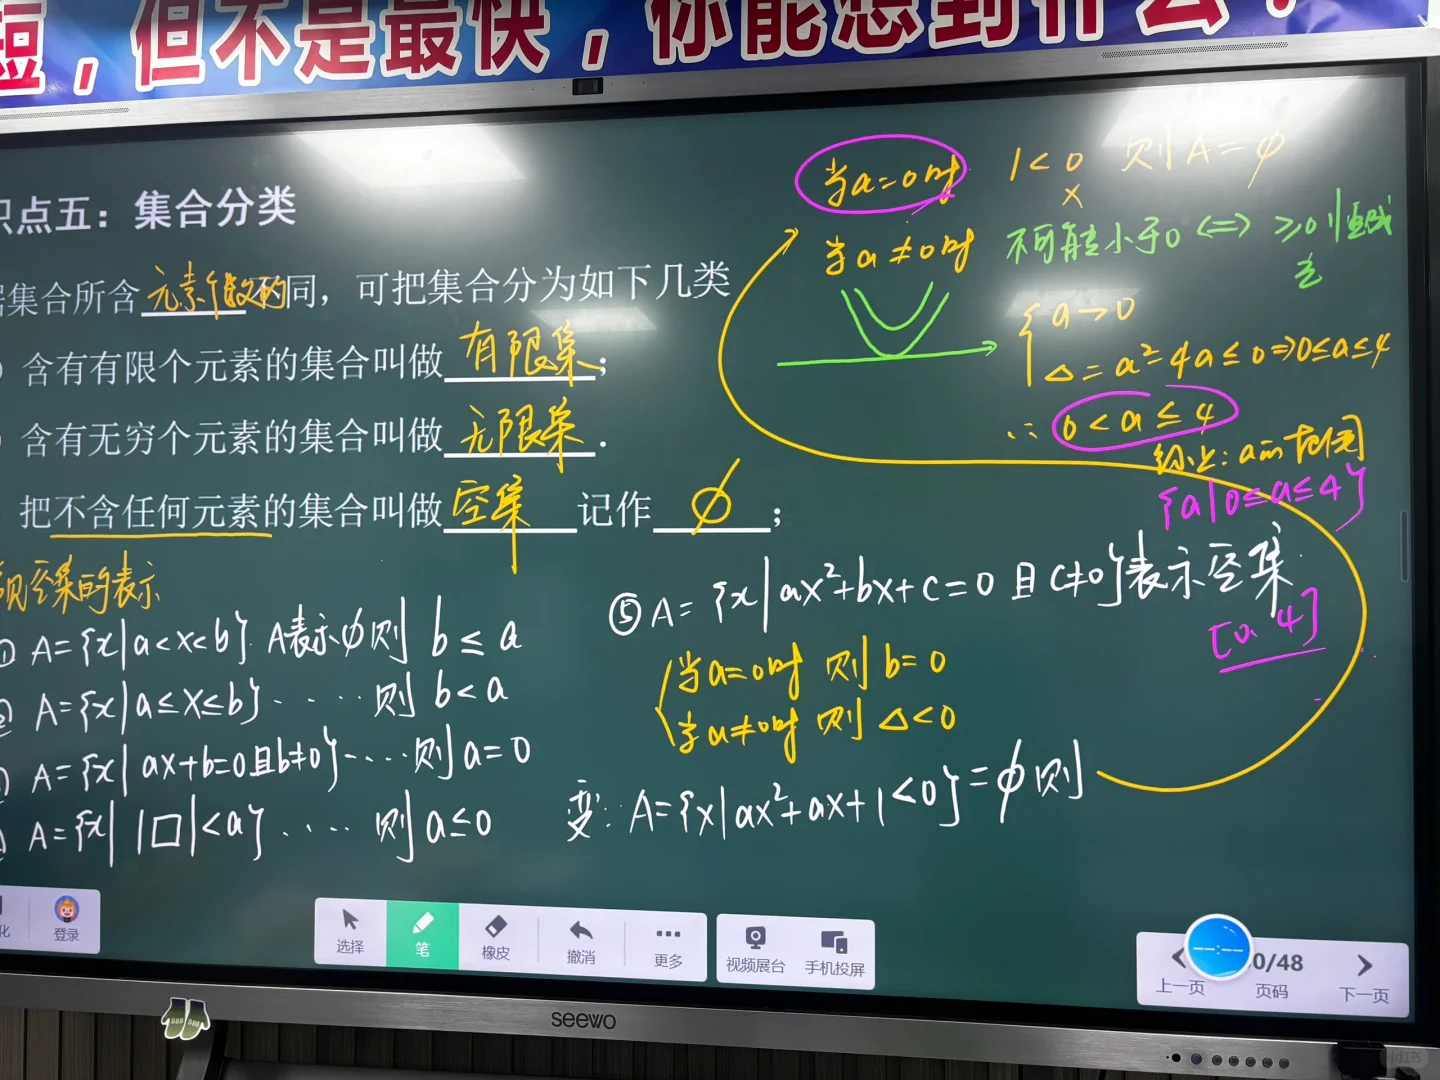 短，但不是最快，你能想到什么？
识点五：集合分类
据集合所含元素个数的不同，可把集合分为如下几类
含有有限个元素的集合叫做 有限集；
含有无穷个元素的集合叫做 无限集．
把不含任何元素的集合叫做 空集 记作 ϕ；
空集的表示
① A={x|a<x<b}. A表示ϕ则 b≤a
② A={x|a≤x≤b}‥‥‥则 b<a
A={x|ax+b=0且b≠0}‥‥‥则a=0
A={x||□|<a}‥‥‥则a≤0
当a=0时 1<0 则A=ϕ
×
当a≠0时 不可能小于0 ⟺ ≥0恒成
立
{a>0
Δ=a²-4a≤0⇒0≤a≤4
∴ 0<a≤4
综上:a的范围
{a|0≤a≤4}
⑤A={x|ax²+bx+c=0且c≠0}表示空集
[0. 4]
当a=0时 则 b=0
当a≠0时 则 Δ<0
变: A={x|ax²+ax+1<0}=ϕ则
登录
选择
笔
橡皮
撤消
更多
视频展台
手机投屏
上一页
0/48
页码
下一页
seewo
小红书